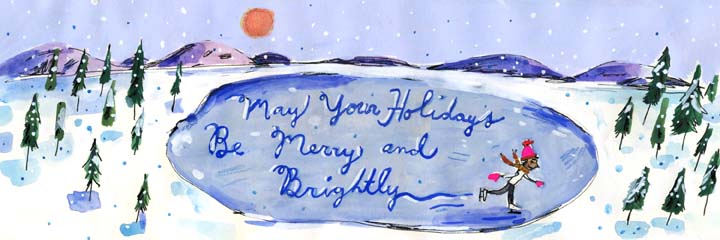 May Your Holidays
Be Merry and
Brightly